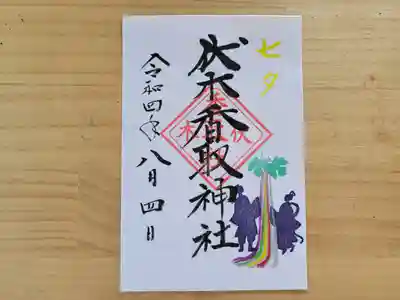 七夕
伏木香取神社
令和四年八月四日